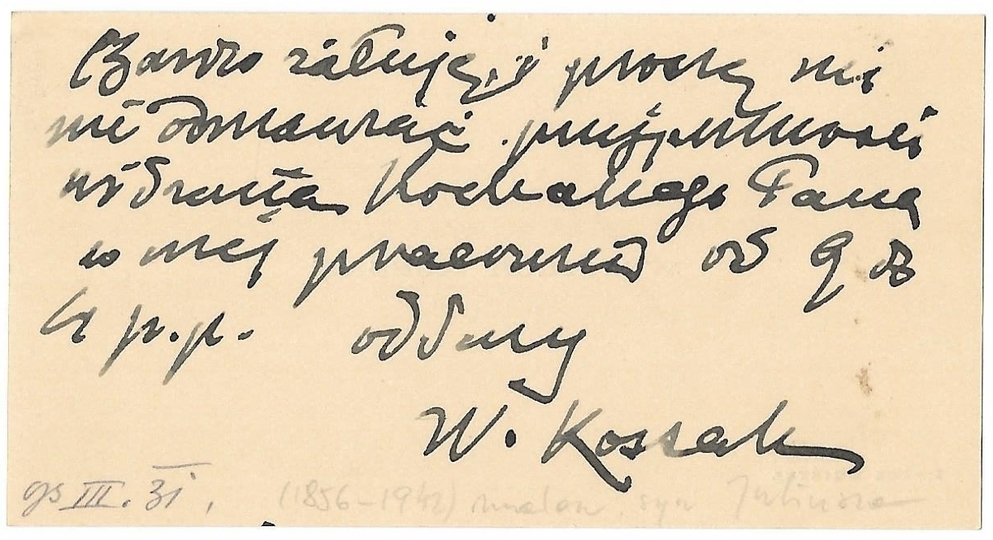 Bardzo żałuję, i proszę mi
nie odmawiać przyjemności
widzenia Kochanego Pana
w mej pracowni od 9 do
4 p.p. oddany
W. Kossak
III. 31.
(1856–1942) malarz. syn Juliusza